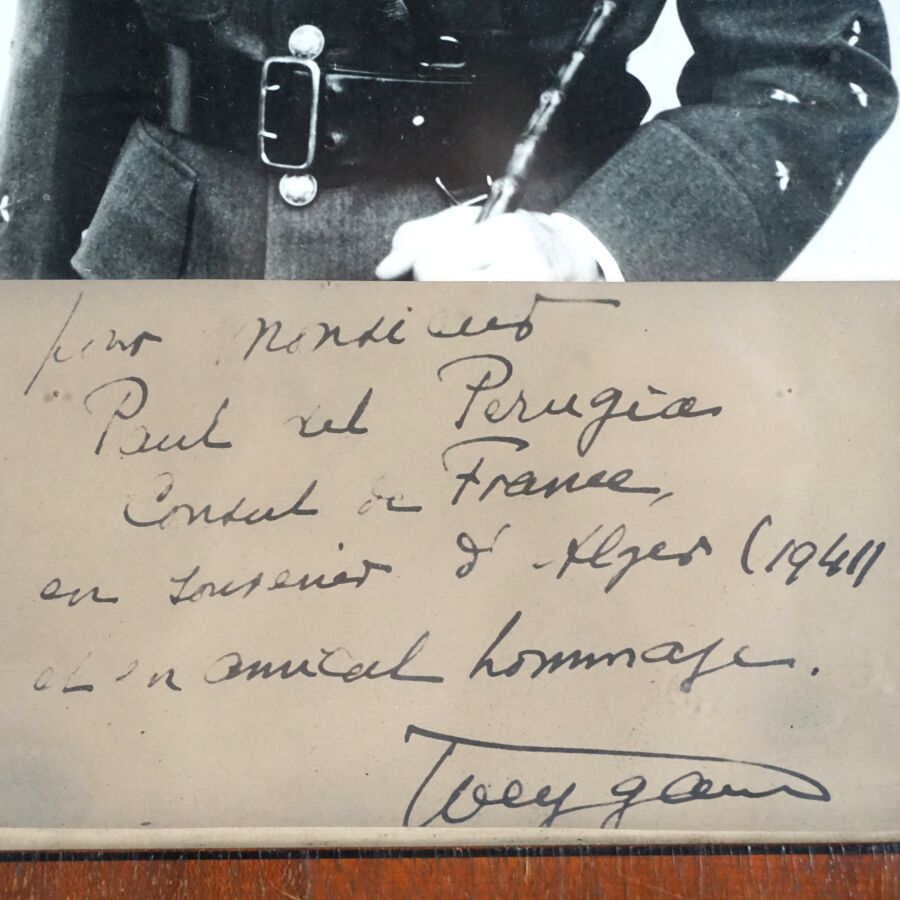 pour Monsieur
Paul del Perugia
Consul de France,
en souvenir d'Alger (1941)
et en amical hommage.
Weygand